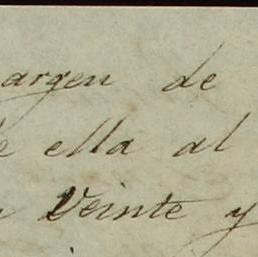 argen de
e ella al
Veinte y